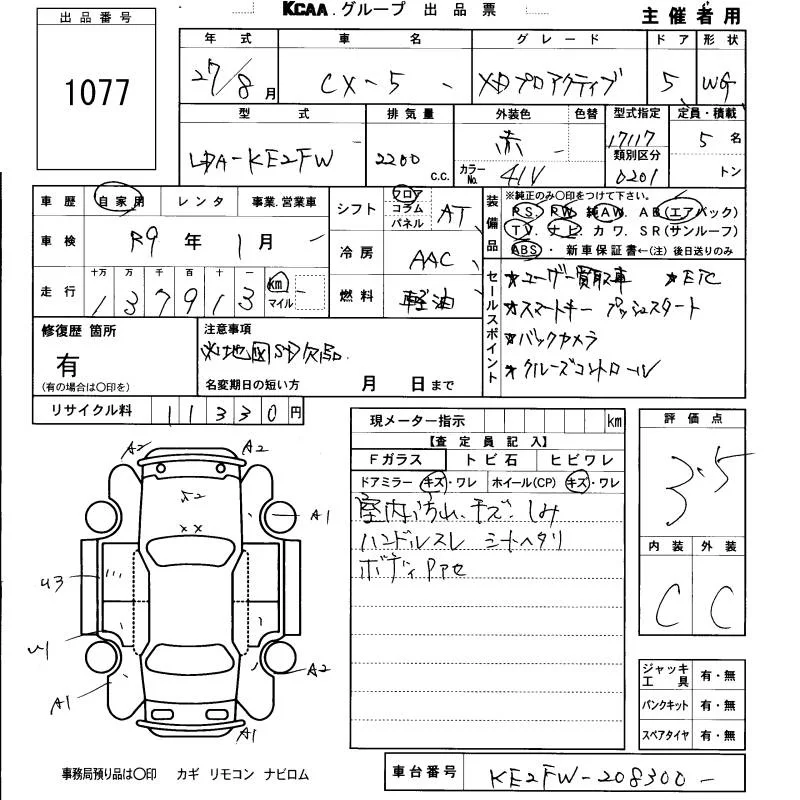 出品番号
1077
KCAA.グループ 出品票
主催者用
年式 車名 グレード ドア 形状
27/8月 CX-5 XDプロアクティブ 5 WG
型式 排気量 外装色 色替 型式指定 定員・積載
LDA-KE2FW 2200 c.c. 赤 17117 5名
カラーNo. 41V 類別区分 0201 トン
車歴 自家用 レンタ 事業.営業車
車検 R9年1月
走行 十万 万 千 百 十 一
137913 km マイル
シフト フロア コラム パネル AT
冷房 AAC
燃料 軽油
装備品
※純正のみ〇印をつけて下さい。
PS. PW. 純AW. AB(エアバック)
TV. ナビ. カワ. SR(サンルーフ)
ABS ・ 新車保証書←(注) 後日送りのみ
セールスポイント
★ユーザー買取車 ★ETC
★スマートキー プッシュスタート
★バックカメラ
★クルーズコントロール
修復歴 箇所
有
(有の場合は〇印を)
注意事項
※地図SD欠品.
名変期日の短い方 月 日まで
リサイクル料 11330円
現メーター指示 km
【査定員記入】
Fガラス トビ石 ヒビワレ
ドアミラー キズ・ワレ ホイール(CP) キズ・ワレ
室内汚れ、キズ、しみ
ハンドルスレ シートヘタリ
ボディ
評価点
3.5
内装 外装
C C
ジャッキ工具 有・無
パンクキット 有・無
スペアタイヤ 有・無
A2 A2
A1
U3
U1
A2
A1
A1
事務局預り品は〇印 カギ リモコン ナビロム
車台番号 KE2FW-208300-